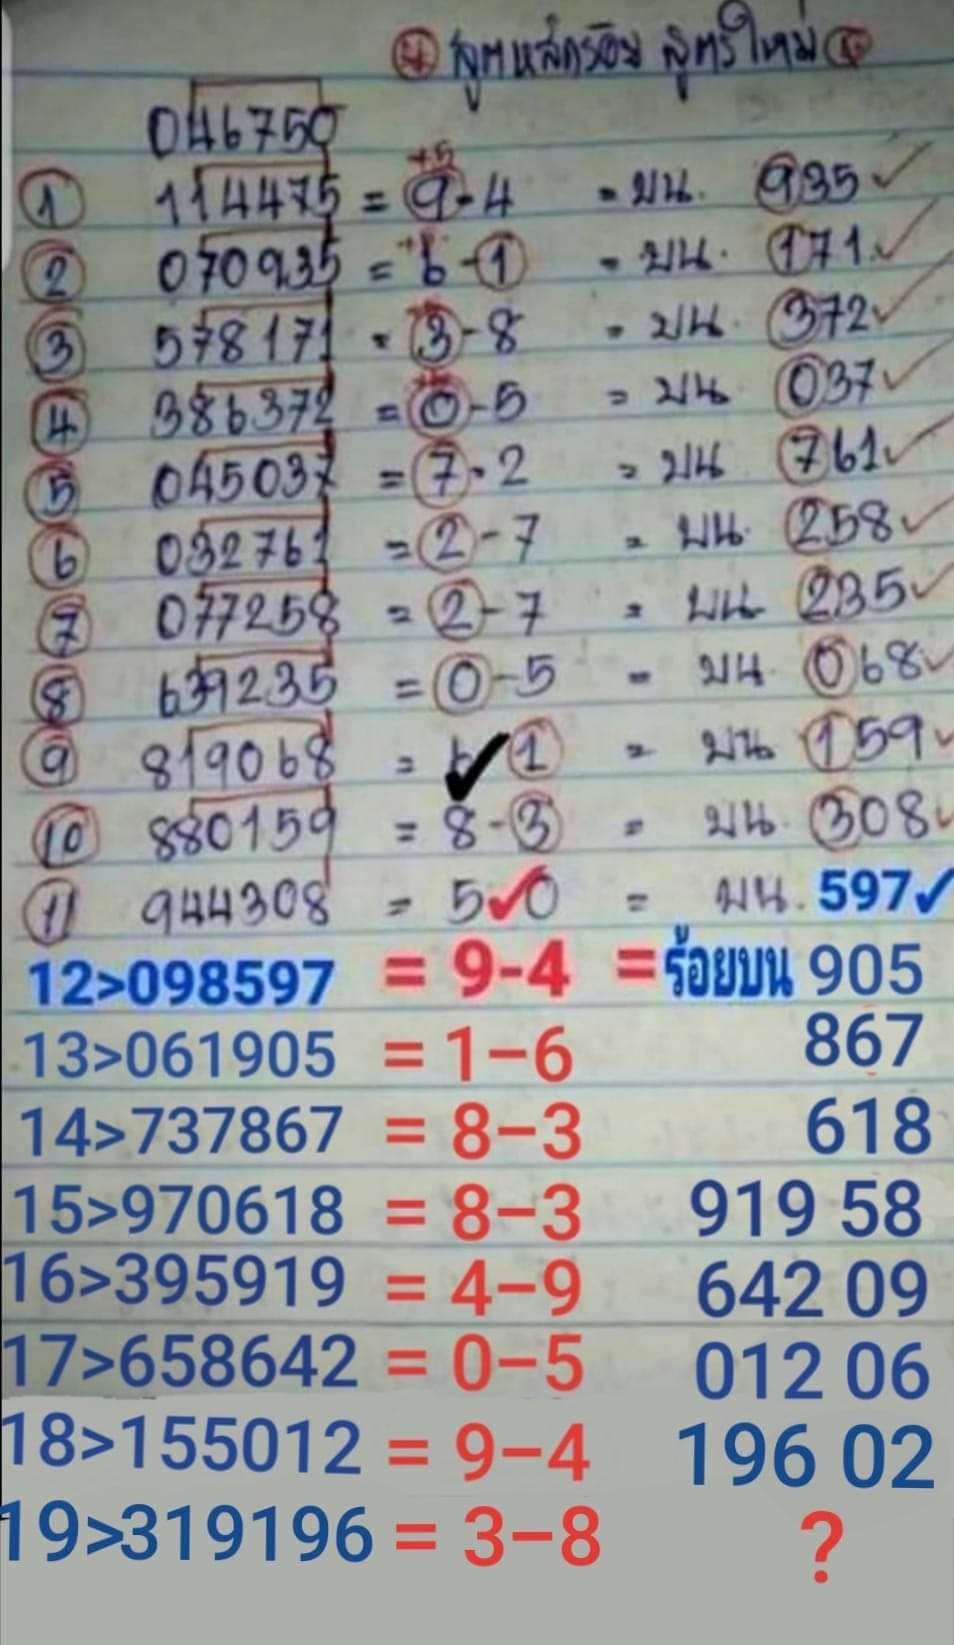 สูตรหลักร้อย สูตรใหม่
046750
+5
① 114475 = 9-4 = บน. 935 ✓
② 070935 = 6-1 = บน. 171 ✓
③ 578171 = 3-8 = บน. 372 ✓
④ 386372 = 0-5 = บน 037 ✓
⑤ 045037 = 7-2 = บน 761 ✓
⑥ 032761 = 2-7 = บน. 258 ✓
⑦ 077258 = 2-7 = บน 235 ✓
⑧ 639235 = 0-5 = บน 068 ✓
⑨ 819068 = 6 ✓ 1 = บน 159 ✓
⑩ 880159 = 8-3 = บน. 308 ✓
⑪ 944308 = 5 ✓ 0 = บน. 597 ✓
12>098597 = 9-4 = ร้อยบน 905
13>061905 = 1-6 867
14>737867 = 8-3 618
15>970618 = 8-3 919 58
16>395919 = 4-9 642 09
17>658642 = 0-5 012 06
18>155012 = 9-4 196 02
19>319196 = 3-8 ?